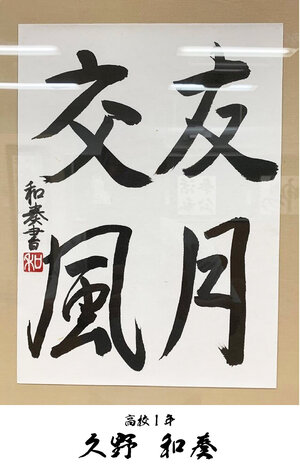 友月
交風
和奏書
和
高校1年
久野 和奏